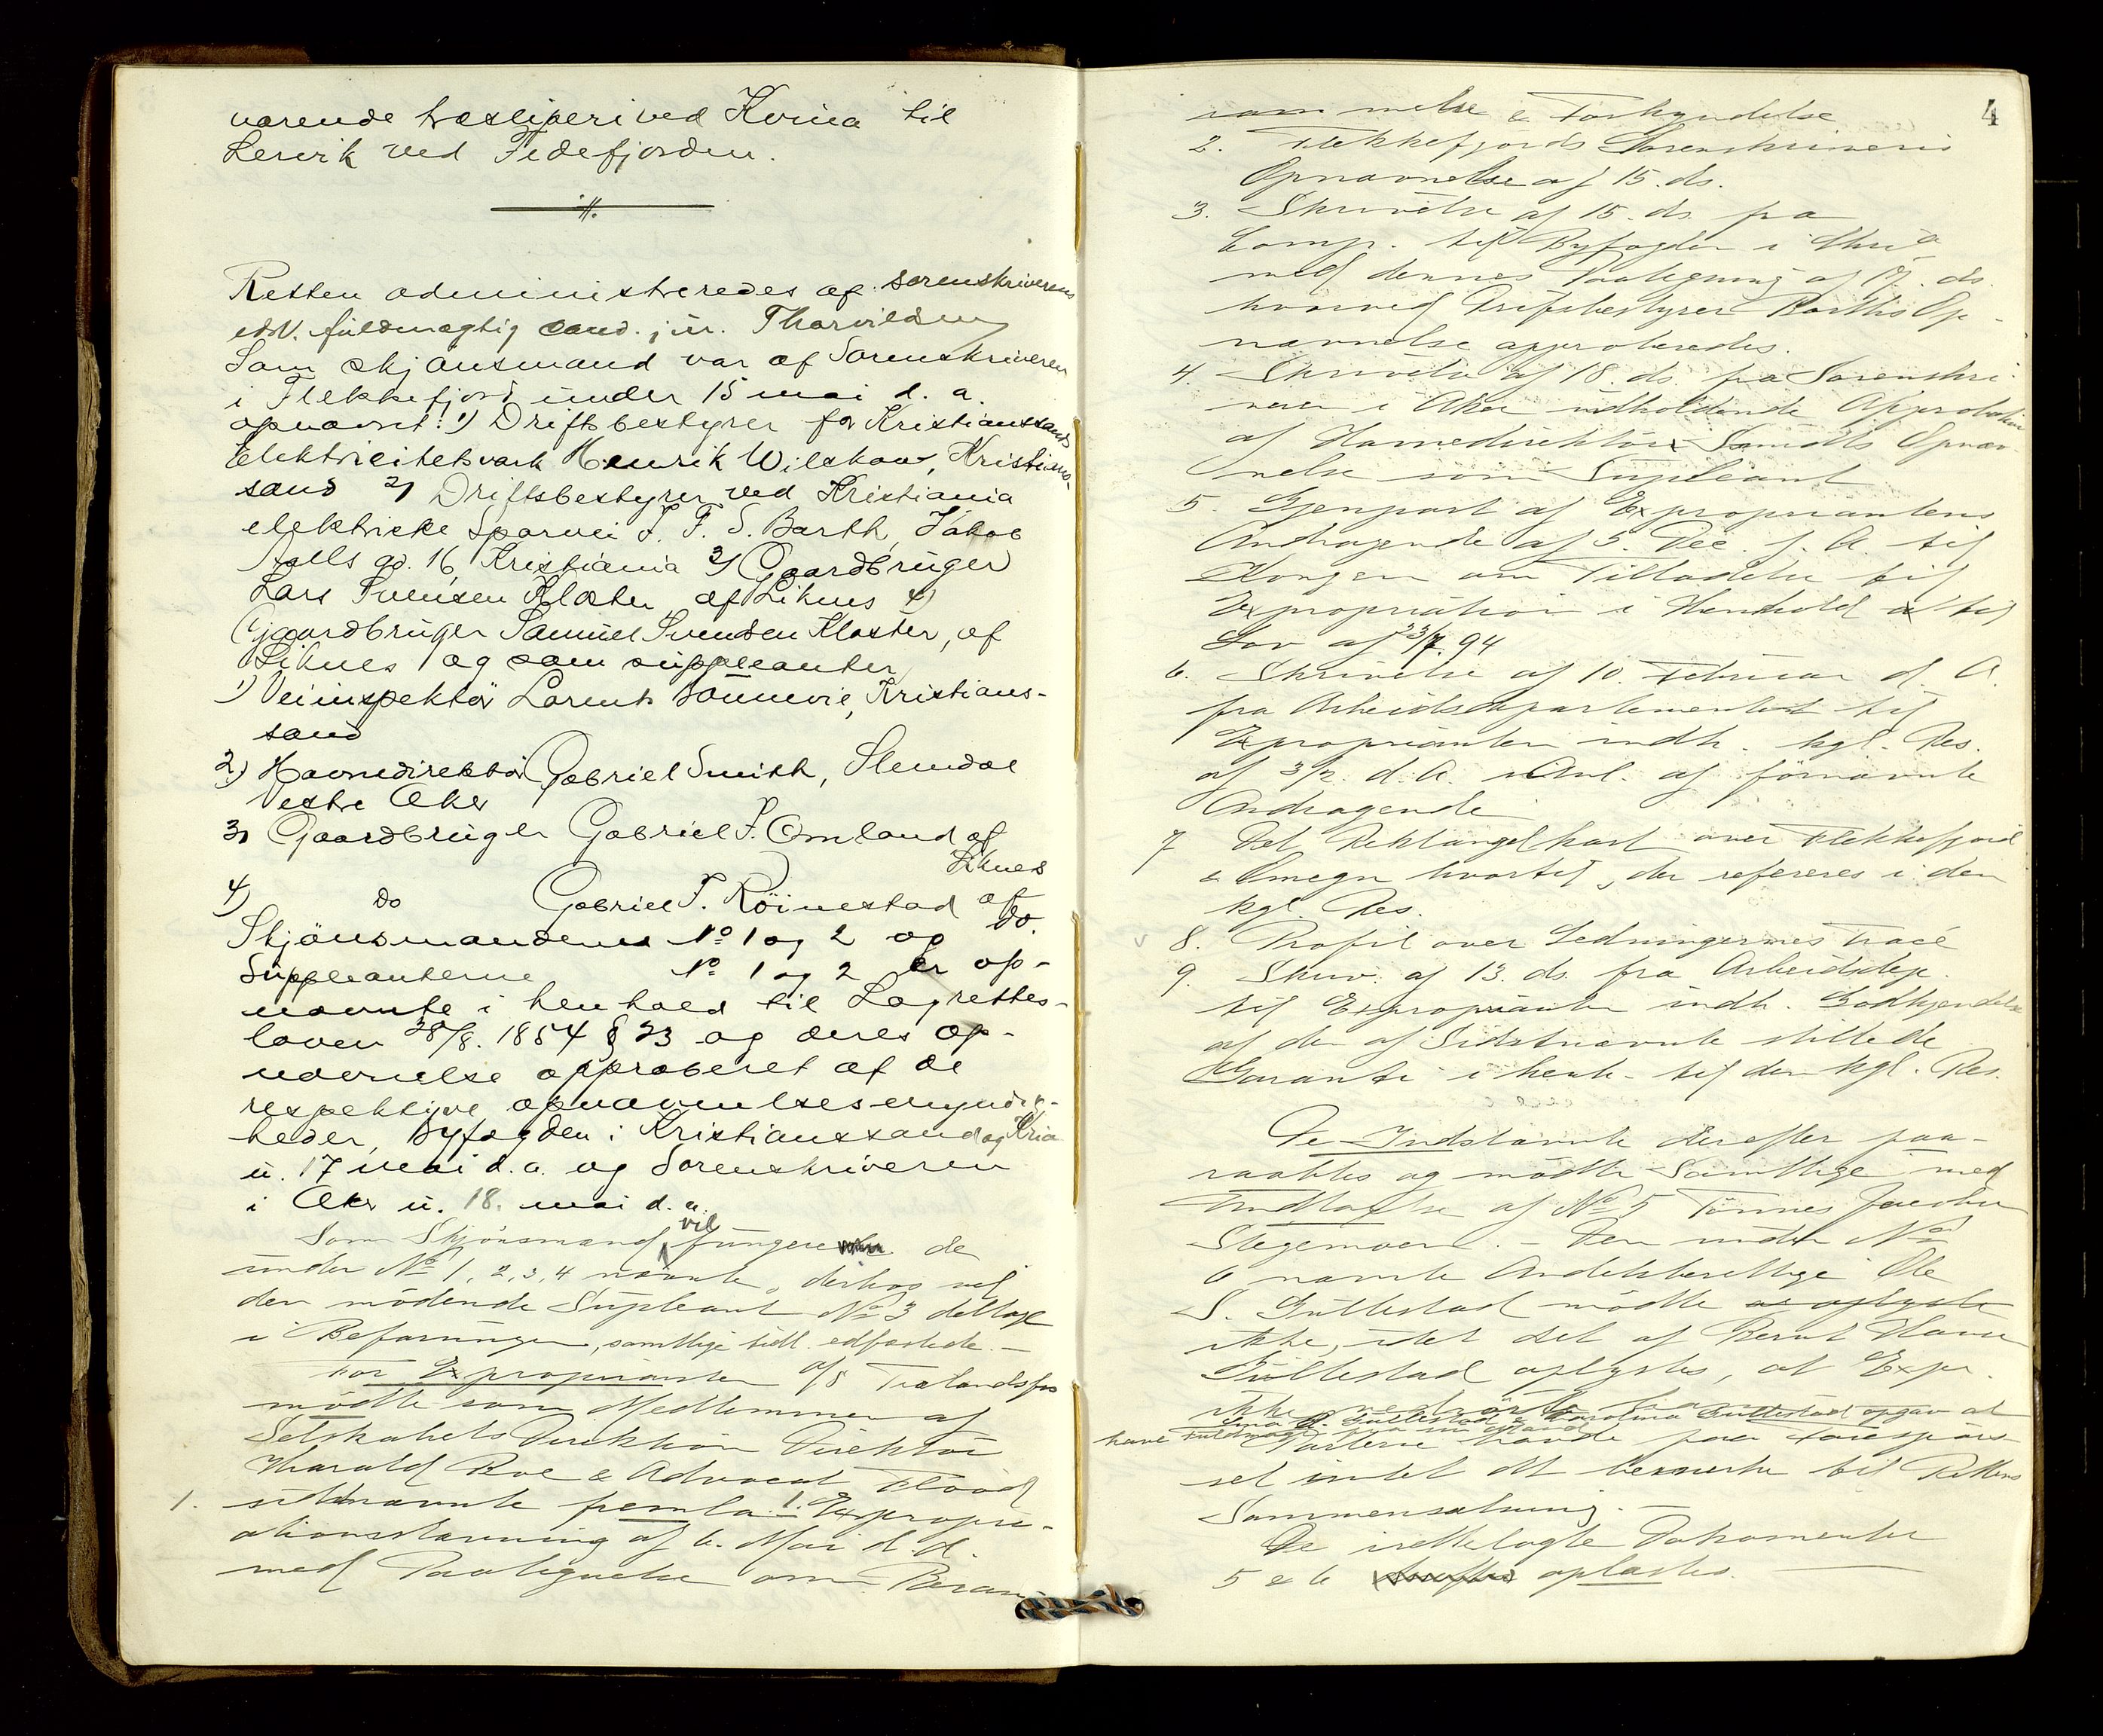 værende træsliperi ved Kvina til
Lervik ved Fedefjorden.
Retten administreredes af sorenskriverens
edsv. fuldmægtig cand. jur. Thorvildsen
Som skjønsmænd var af Sorenskriveren
i Flekkefjord under 15 mai d. a.
opnævnt: 1) Driftsbestyrer for Kristianssands
Elektricitetsværk Henrik Wilskow, Kristians-
sand 2) Driftsbestyrer ved Kristiania
elektriske Sporvei F. F. S. Barth, Jakob
Aalls gd. 16 Kristiania 3) Gaardbruger
Lars Svensen Kloster af Liknes 4)
Gaardbruger Samuel Svendsen Kloster, af
Liknes og som suppleanter
1) Veiinspektør Lorents Sømme, Kristians-
sand
2) Havnedirektør Gabriel Smith, Slemdal
Vestre Aker
3) Gaardbruger Gabriel F. Omland af
Liknes
4) do Gabriel T. Röinestad af
do.
Skjönsmændene No 1 og 2 og
Suppleanterne No 1 og 2 er op-
nævnte i henhold til Lagrettes-
loven 28/8. 1854 § 23 og deres op-
nævnelse approberet af de
respektive opnævnelsesmyndig-
heder, Byfogden i Kristianssand og Kria
u. 17 mai d. a. og Sorenskriveren
i Aker u. 18. mai d. a.
Som Skjønsmænd vil fungere de
under No 1, 2, 3, 4 nævnte, derhos vil
den mødende Supleant No 3 deltage
i Befaringen, samtlige tidl. edfæstede. —
For Exproprianten A/S Trælandsfos
mødte som Medlemmer af
Selskabets Direktion Direktør
Harald Boe & Advocat Flood
1. sidstnævnte fremla 1. Expropri-
ationsstævning af 6. Mai d. A.
med Paategnelse om Beram-
4
rammelse & Forkyndelse
2. Flekkefjords Sorenskriveris
Opnævnelse af 15. ds.
3. Skrivelse af 15. ds. fra
Comp. til Byfogden i Kria
med dennes Paategning af 17. ds.
hvorved Driftsbestyrer Barths Op-
nævnelse approberedes.
4. Skrivelse af 18. ds. fra Sorenskri-
veren i Aker indholdende Approbation
af Havnedirektør Smidts Opnæv-
nelse som Supleant
5. Gjenpart af Expropriantens
Andragende af 5. Dec. f. A. til
Kongen om Tilladelse til
Expropriation i Henhold til
Lov af 23/7. 94
6. Skrivelse af 10. Februar d. A.
fra Arbeidsdepartementet til
Exproprianten indh. kgl. Res.
af 3/2. d. A. i Anl. af førnævnte
Andragende
7 Det Rektangelkart over Flekkefjord
& Omegn hvortil der refereres i den
kgl. Res.
8. Profil over Ledningernes Tracé
9. Skriv. af 13. ds. fra Arbeidsdep.
til Expropianten indh. Godkjendelse
af den af Sidstnævnte stillede
Garanti i henh. til den kgl. Res.
De Indstævnte derefter paa-
raabtes og mødte Samtlige med
Undtagelse af No 5 Tønnes Jacobsen
Stegemoen. — Den under No
6 nævnte Andelsberettige Ole
S. Gullestad mødte
ikke, idet det af Bernt Hansen
Gullestad oplystes, at Expr.
ikke
Gullestad & Karolina Gullestad opgav at
have Fuldmagt fra sin Mand
Parterne havde paa Forespørs-
sel intet at bemerke til Rettens
Sammensætning. —
De irettelagte Dokumenter
5 & 6 oplæstes.